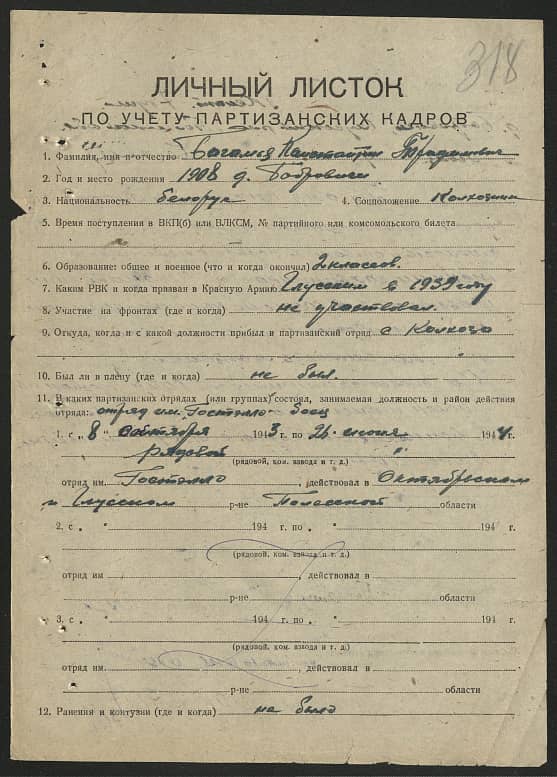 318
ЛИЧНЫЙ ЛИСТОК
ПО УЧЕТУ ПАРТИЗАНСКИХ КАДРОВ
1. Фамилия, имя и отчество Константин
2. Год и место рождения 1908 д. Бобровичи
3. Национальность белорус 4. Соцположение Колхозник
5. Время поступления в ВКП(б) или ВЛКСМ, № партийного или комсомольского билета
6. Образование: общее и военное (что и когда окончил) 2 классов.
7. Каким РВК и когда призван в Красную Армию Глусским в 1939 году
8. Участие на фронтах (где и когда) не участвовал.
9. Откуда, когда и с какой должности прибыл в партизанский отряд с Колхоза
10. Был ли в плену (где и когда) не был.
11. В каких партизанских отрядах (или группах) состоял, занимаемая должность и район действия
отряда: отряд им. Гостэлло - боец
1. с „8 сентября 1943 г. по „26 июня 1944 г.
рядовой
(рядовой, ком. взвода и т. д.)
отряд им Гостэлло, действовал в Октябрьском
и Глусском р-не Полесской области
2. с „ " 194 г. по „ " 194 г.
(рядовой, ком. взвода и т. д.)
отряд им , действовал в
р-не области
3. с „ " 194 г. по „ " 194 г.
(рядовой, ком. взвода и т. д.)
отряд им , действовал в
р-не области
12. Ранения и контузии (где и когда) не было